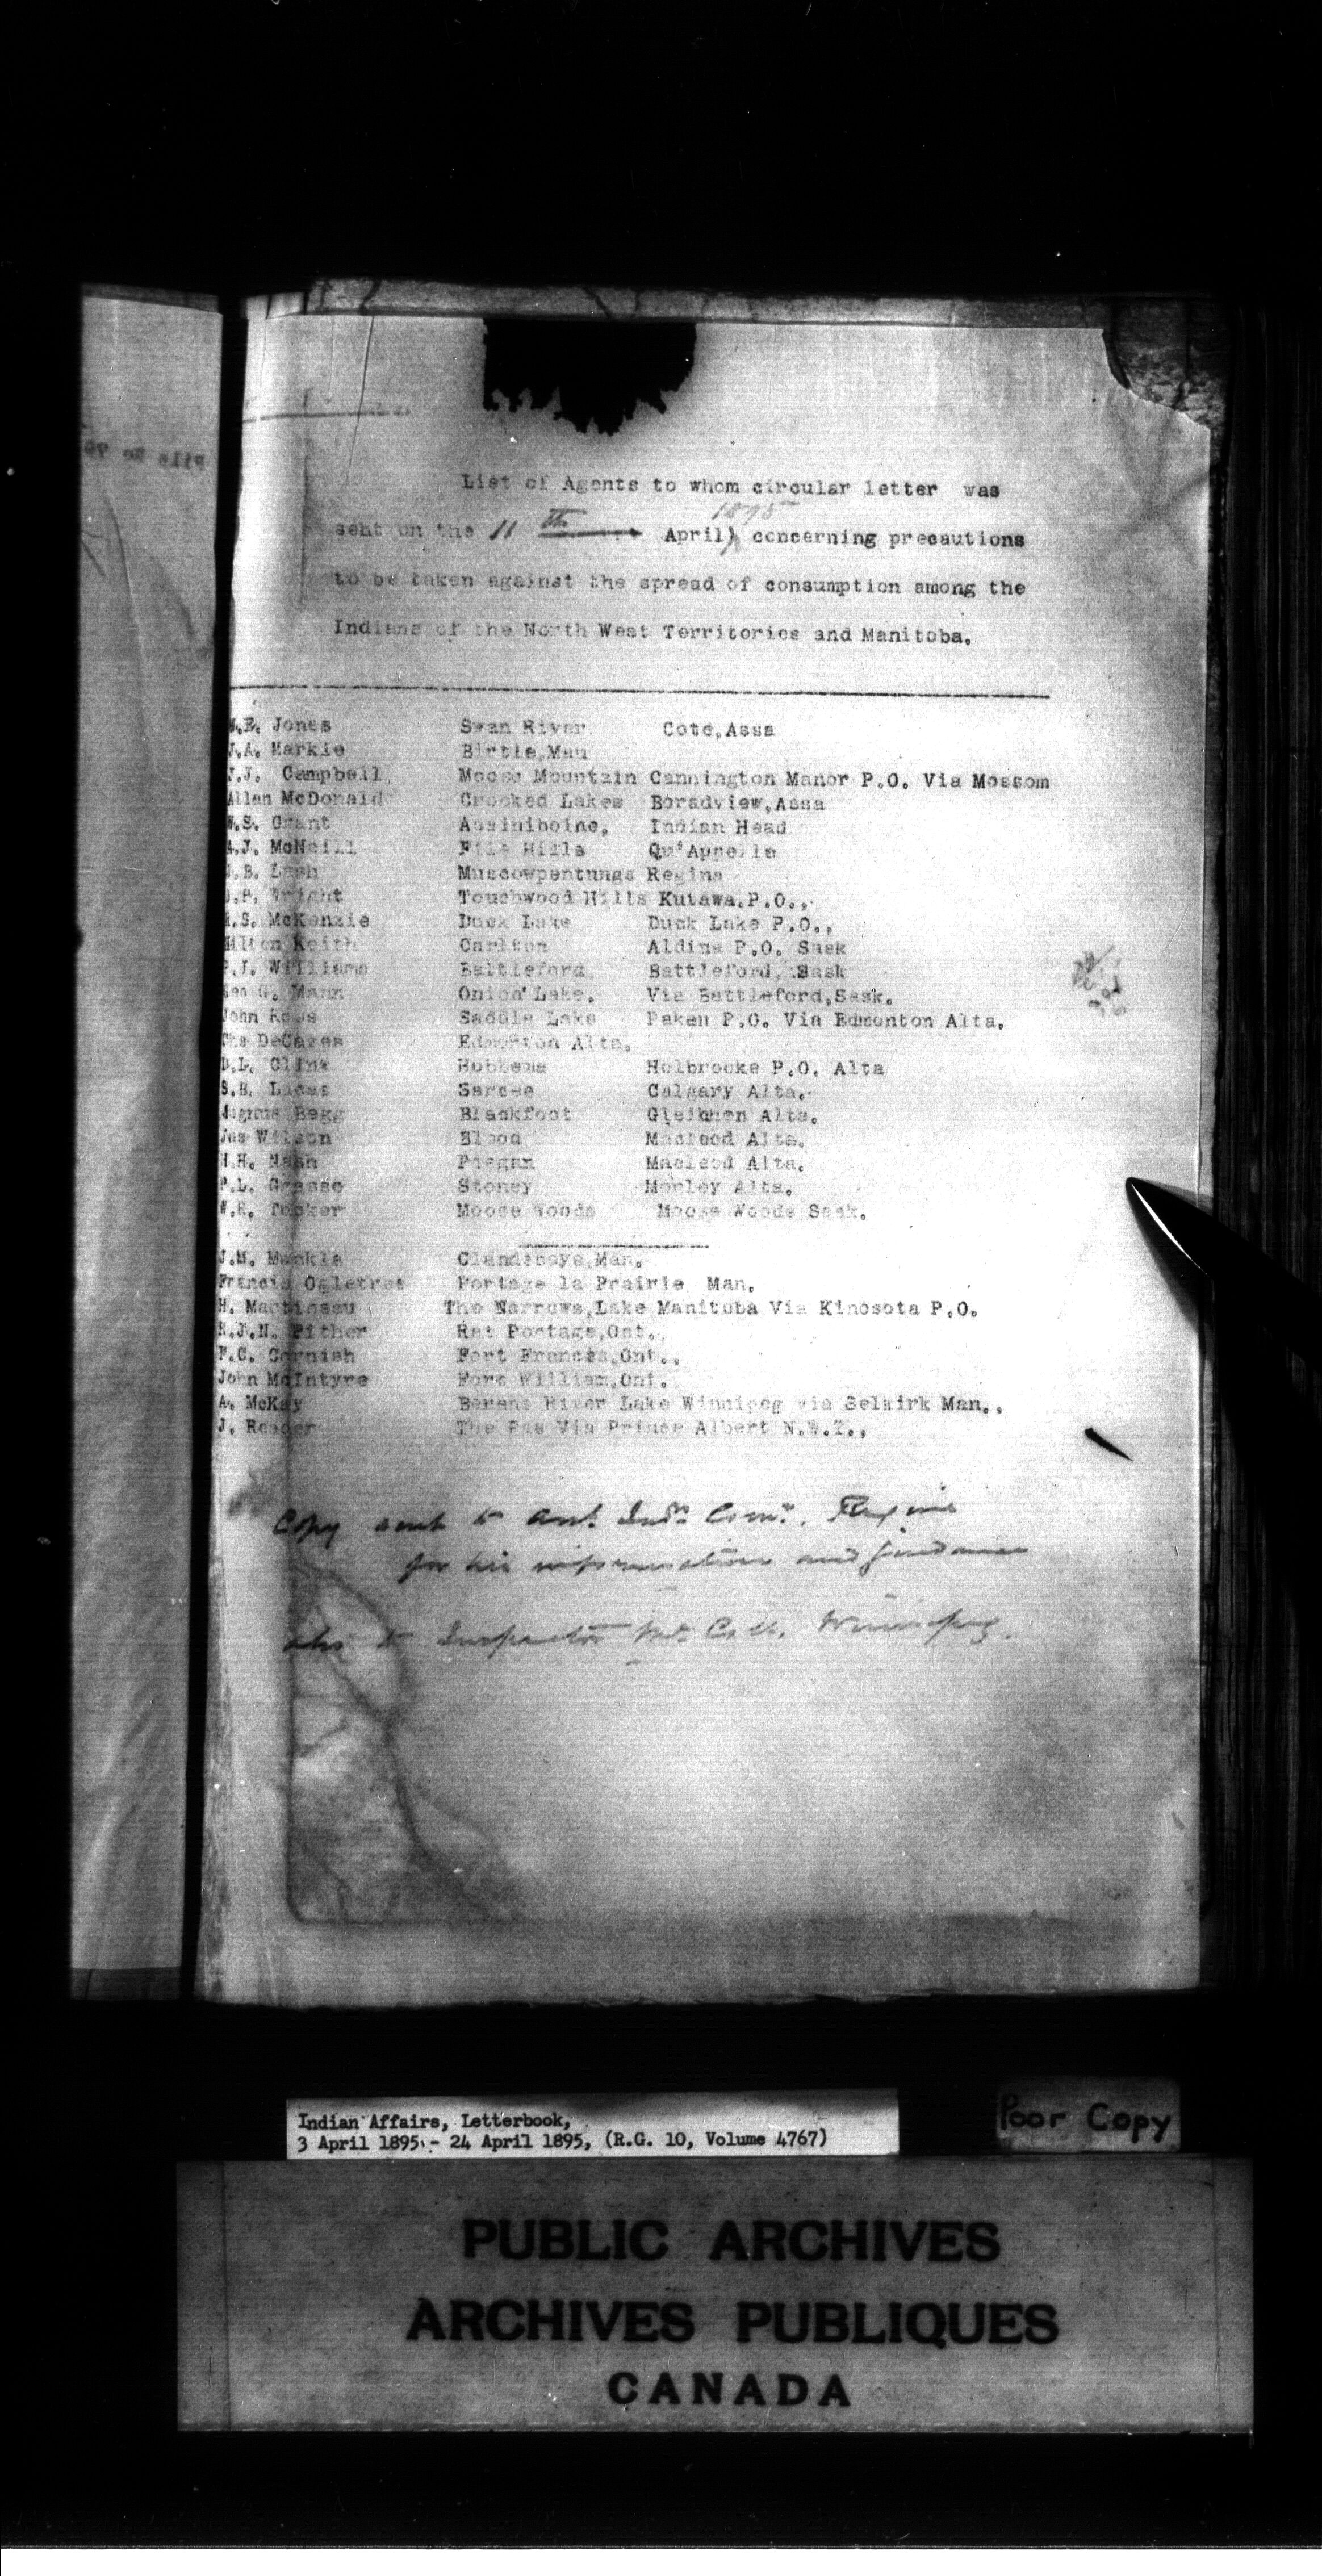 List of Agents to whom circular letter was
sent on the 11th April, 1895 concerning precautions
to be taken against the spread of consumption among the
Indians of the North West Territories and Manitoba.
W.E. Jones Swan River Cote,Assa
J.A. Markle Birtle,Man
J.J. Campbell Moose Mountain Cannington Manor P.O. Via Mossom
Allan McDonald Crooked Lakes Boradview,Assa
W.S. Grant Assiniboine. Indian Head
A.J. McNeill File Hills Qu'Appelle
J.B. Lash Muscowpentungs Regina
J.P. Wright Touchwood Hills Kutawa.P.O.,
R.S. McKenzie Duck Lake Duck Lake P.O.,
Hilton Keith Carlton Aldina P.O. Sask
P.J. Williams Battleford Battleford, Sask
Geo G. Mann Onion Lake. Via Battleford,Sask.
John Ross Saddle Lake Pakan P.O. Via Edmonton Alta.
Chs DeCazes Edmonton Alta.
D.L. Clink Hobbema Holbrooke P.O. Alta
S.B. Lucas Sarcee Calgary Alta.
Magnus Begg Blackfoot Gleichen Alta.
Jas Wilson Blood Macleod Alta.
H.H. Nash Piegan Macleod Alta.
P.L. Grasse Stoney Morley Alta.
W.R. Tucker Moose Woods Moose Woods Sask.
J.M. Muckle Clandeboye,Man.
Francis Ogletree Portage la Prairie Man.
H. Martineau The Narrows,Lake Manitoba Via Kinosota P.O.
R.J.N. Pither Rat Portage,Ont.
F.C. Cornish Fort Frances,Ont.,
John McIntyre Fort William,Ont.
A. McKay Berens River Lake Winnipeg via Selkirk Man.,
J. Reader The Pas Via Prince Albert N.W.T.,
Copy sent to Asst. Indn. Comr. Regina
for his information and guidance
also to Inspector McColl, Winnipeg.
Indian Affairs, Letterbook,
3 April 1895 - 24 April 1895, (R.G. 10, Volume 4767)
Poor Copy
PUBLIC ARCHIVES
ARCHIVES PUBLIQUES
CANADA